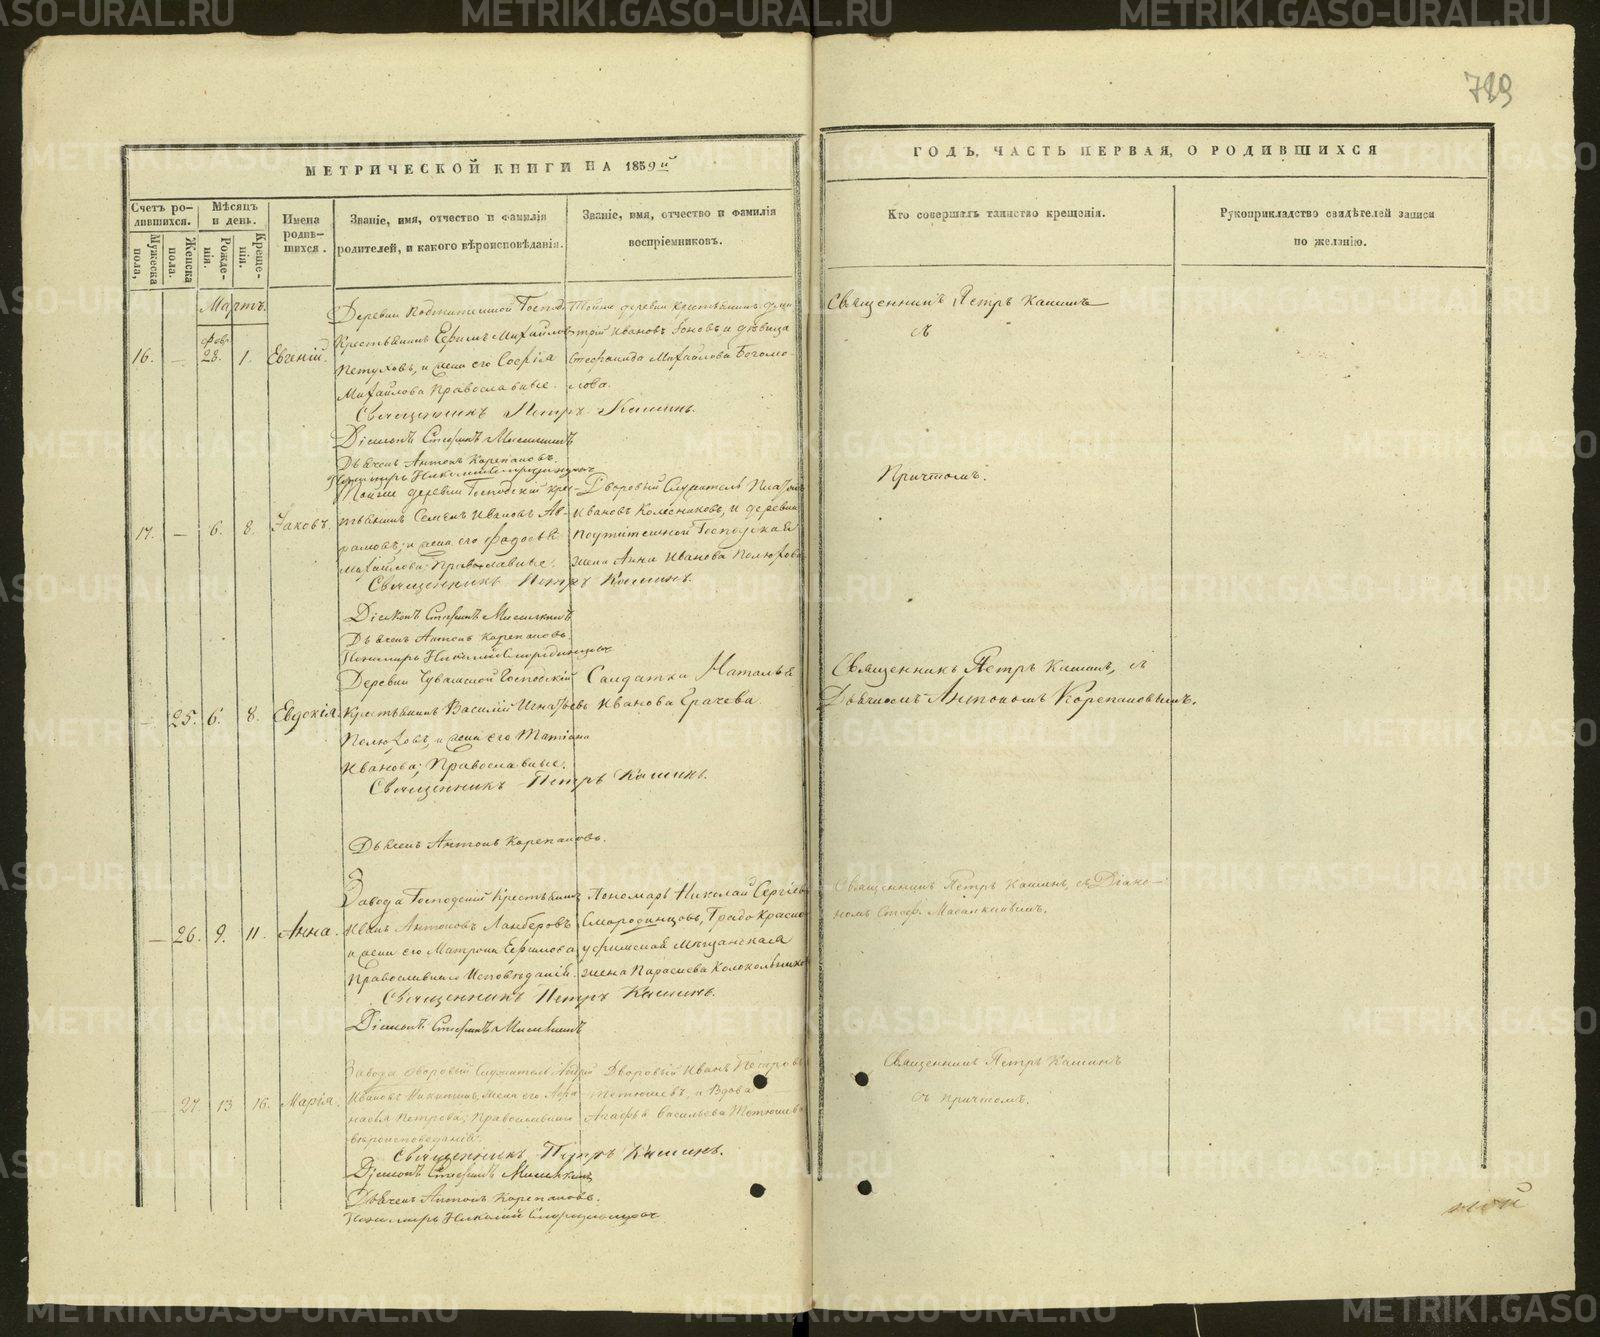 789
МЕТРИЧЕСКОЙ КНИГИ НА 1859й
ГОДЪ, ЧАСТЬ ПЕРВАЯ, О РОДИВШИХСЯ
Счетъ родившихся.
Мужеска пола,
Женска пола.
Мѣсяцъ и день.
Рожденія.
Крещенія.
Имена родившихся.
Званіе, имя, отчество и фамилія родителей, и какого вѣроисповѣданія.
Званіе, имя, отчество и фамилія воспріемниковъ.
Кто совершалъ таинство крещенія.
Рукоприкладство свидѣтелей записи по желанію.
Мартъ.
Фев.
16. — 28. 1. Евгеній.
Деревни Господ.
Крестьянинъ Ефимъ Михайловъ
Петуховъ, и жена его Софія
Михайлова Православные.
Тойже деревни Крестьянинъ
Ивановъ и дѣвица
Стефанида Михайлова Богомо-
лова.
Священникъ Петръ Кашинъ
съ
Причтомъ.
Священникъ Петръ Кашинъ.
Діаконъ Стефанъ
Дьячекъ Антонъ Корепановъ.
Пономарь Николай Смородинцовъ
17. — 6. 8. Іаковъ.
Тойже деревни Господскій крес-
тьянинъ Семенъ Ивановъ Ав-
рамовъ, и жена его
Михайлова, Православные.
Дворовый Служитель
Ивановъ Колесниковъ, и деревни
Господская
жена Анна Иванова
Священникъ Петръ Кашинъ.
Діаконъ Стефанъ
Дьячекъ Антонъ Корепановъ.
Пономарь Николай Смородинцовъ
— 25. 6. 8. Евдокія.
Деревни Чувашской Господскій
Крестьянинъ Василій Игнатьевъ
и жена его Татіана
Иванова; Православные.
Солдатка Наталья
Иванова Грачева
Священникъ Петръ Кашинъ, съ
Дьячкомъ Антономъ Корепановымъ.
Священникъ Петръ Кашинъ.
Дьячекъ Антонъ Корепановъ.
— 26. 9. 11. Анна.
Завода Господскій Крестьянинъ
Иванъ Антоновъ Ланберовъ
и жена его Матрона Ефимова
Православнаго Исповѣданія.
Пономарь Николай Сергіевъ
Смородинцовъ, Градо Красно-
уфимская Мѣщанская
жена Параскева Колокольникова
Священникъ Петръ Кашинъ, съ Діако-
номъ Стеф.
Священникъ Петръ Кашинъ.
Діаконъ Стефанъ
— 27. 13 16. Марія.
Завода Дворовый Служитель Андрей
Ивановъ Никитинъ, жена его Афа-
насья Петрова; Православнаго
вѣроисповеданія.
Дворовый Иванъ Петровъ
Тетюшевъ, и Вдова
Агафья Васильева Тетюшева
Священникъ Петръ Кашинъ
съ причтомъ.
Священникъ Петръ Кашинъ.
Діаконъ Стефанъ
Дьячекъ Антонъ Корепановъ.
Пономарь Николай Смородинцовъ
METRIKI.GASO-URAL.RU